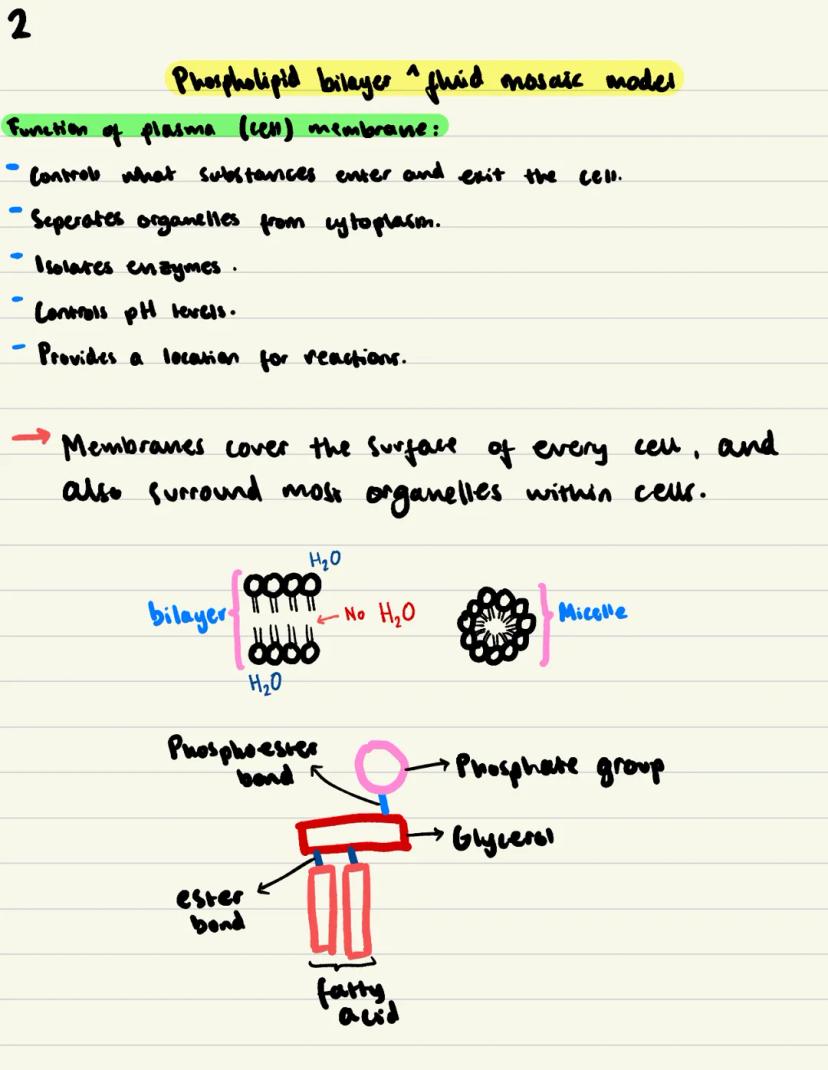 2
Phospholipid bilayer ^ fluid mosaic model
Function of plasma (cell) membrane:
- Controls what substances enter and exit the cell.
- Seperates organelles from cytoplasm.
- Isolates enzymes.
- Controls pH levels.
- Provides a location for reactions.
→ Membranes cover the surface of every cell, and
also surround most organelles within cells.
H₂O
bilayer
← No H₂O
Micelle
H₂O
Phosphoester
bond
Phosphate group
Glycerol
ester
bond
fatty
acid